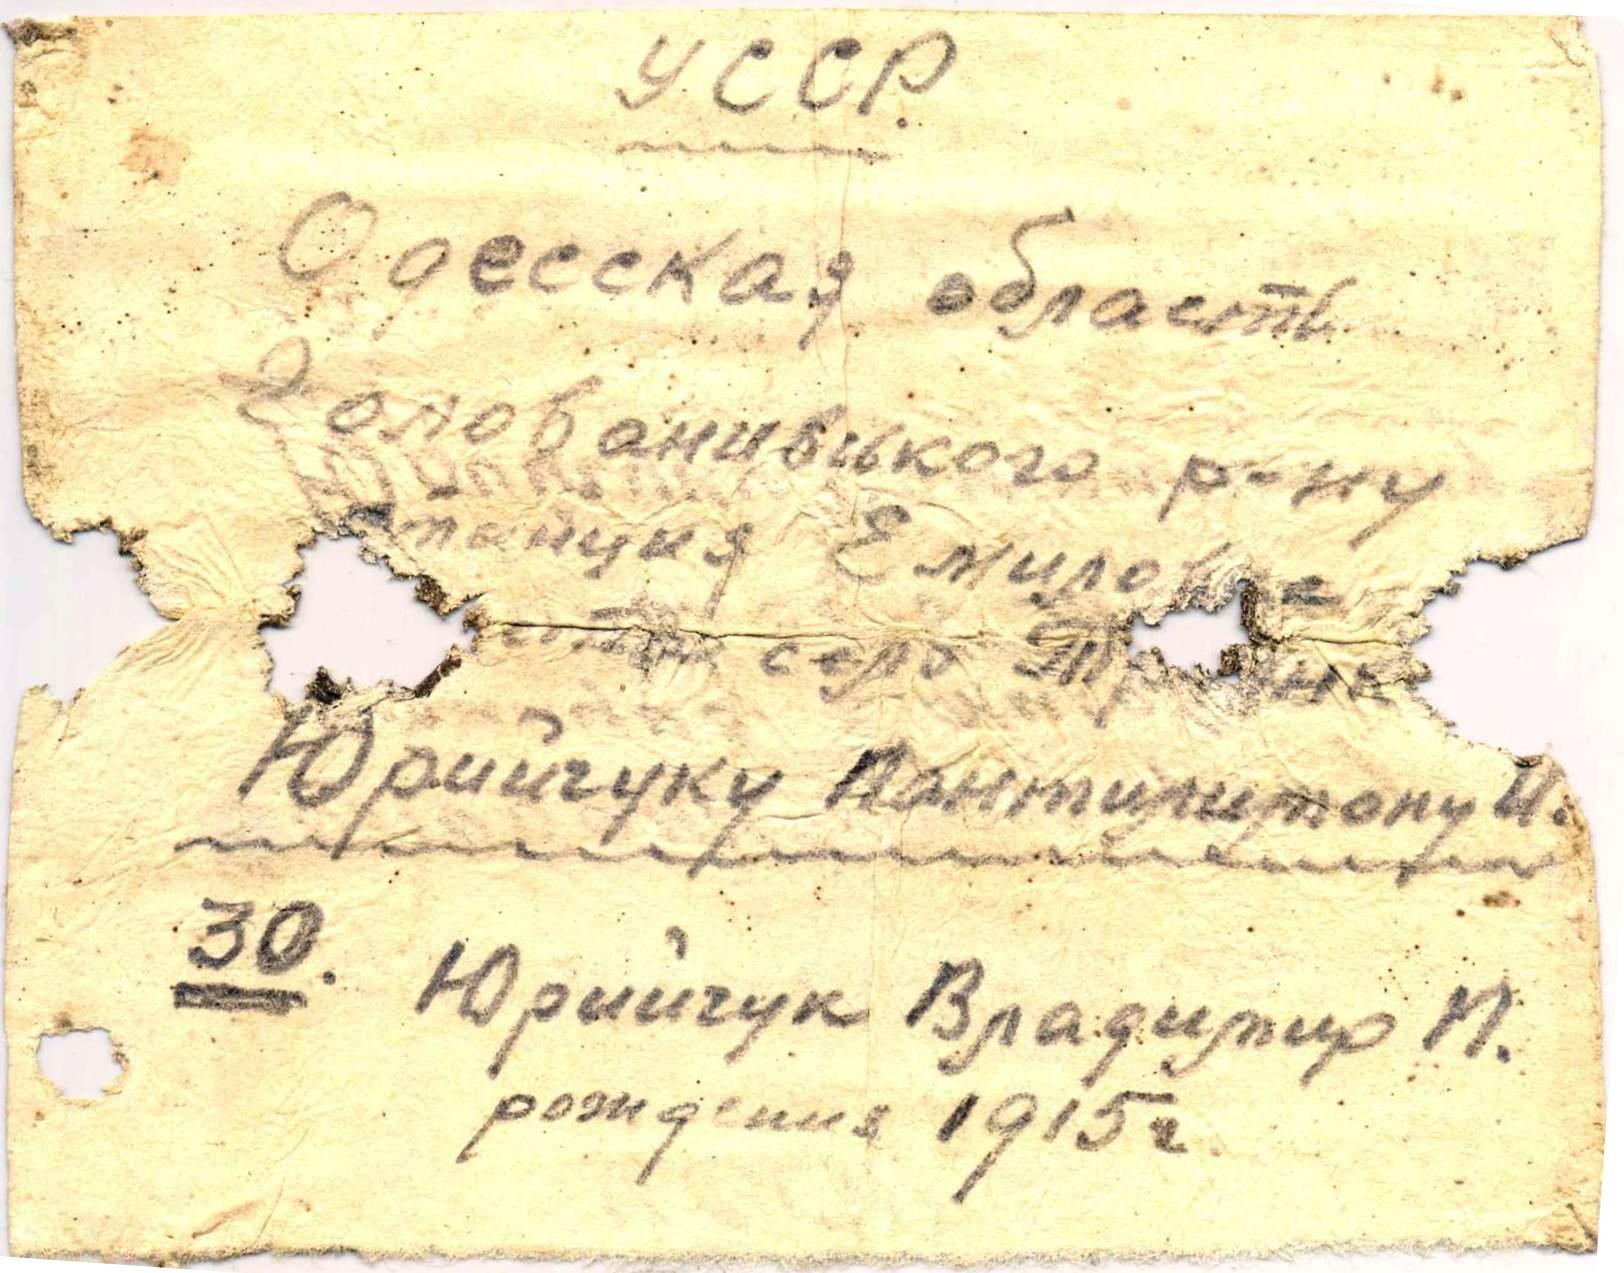 УССР.
Одесская область
Голованивського р-ну
Станция Емиловка
село
Юрийчуку Пантилимону И.
30. Юрийчук Владимир П.
рождения 1915 г